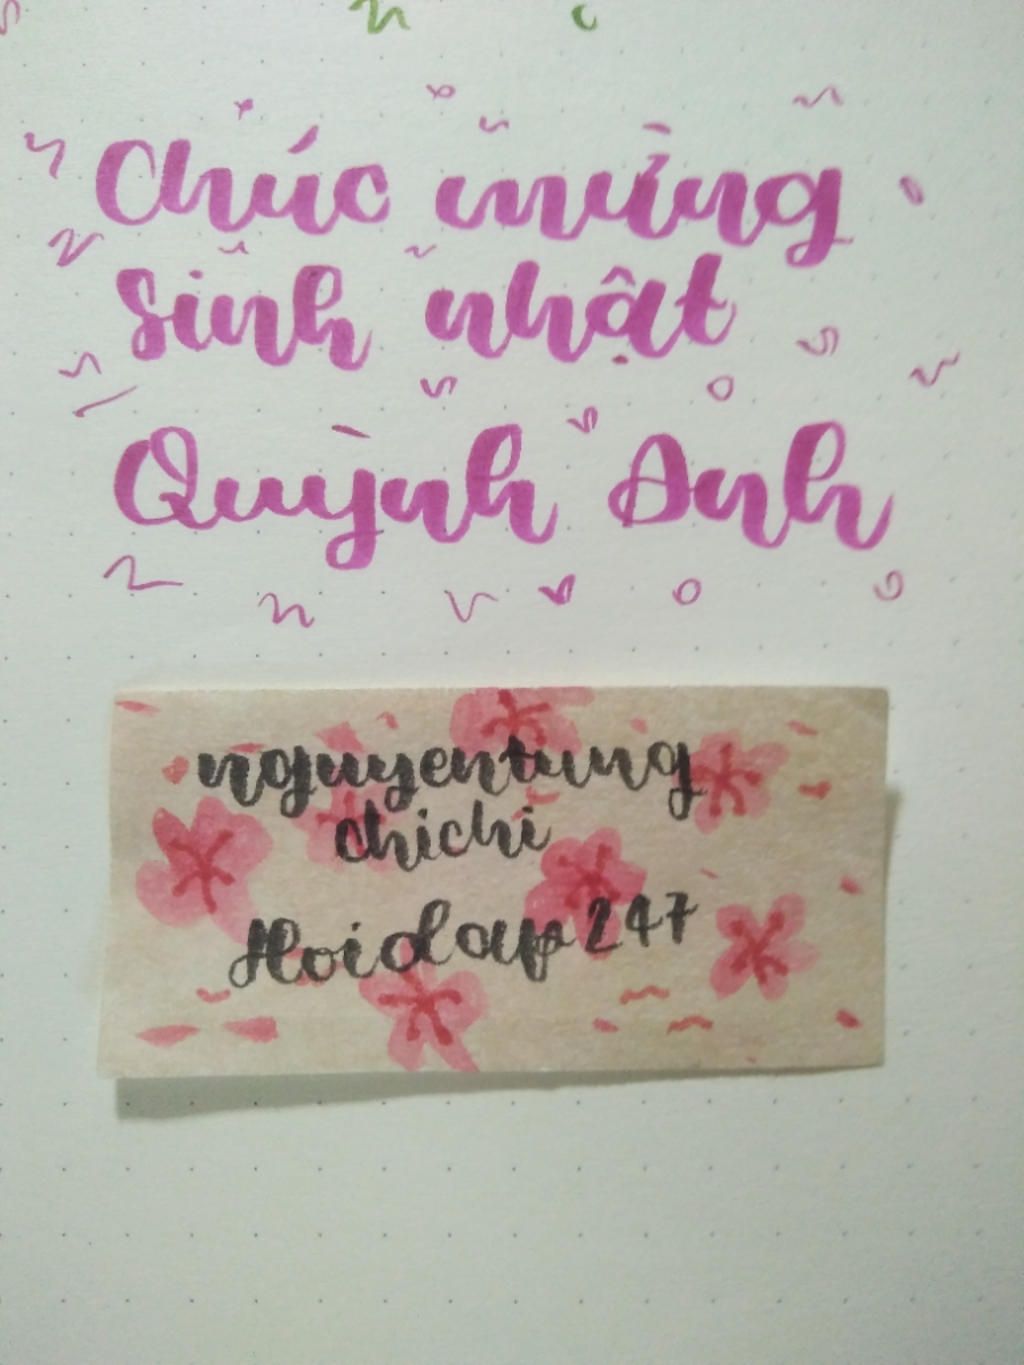 Chúc mừng
sinh nhật
Quỳnh Anh
nguyentung
chichi
Hoidap247